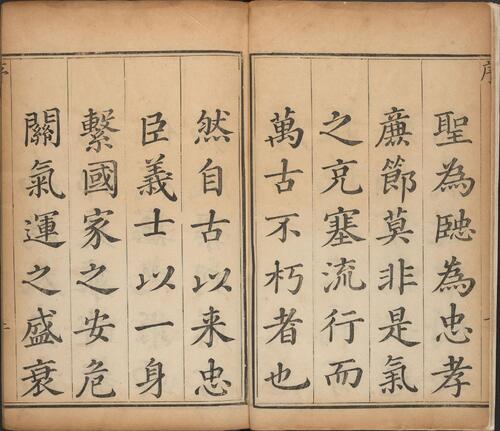 序
聖為聰為忠孝
亷節莫非是氣
之充塞流行而
萬古不朽者也
然自古以来忠
臣義士以一身
繫國家之安危
關氣運之盛衰